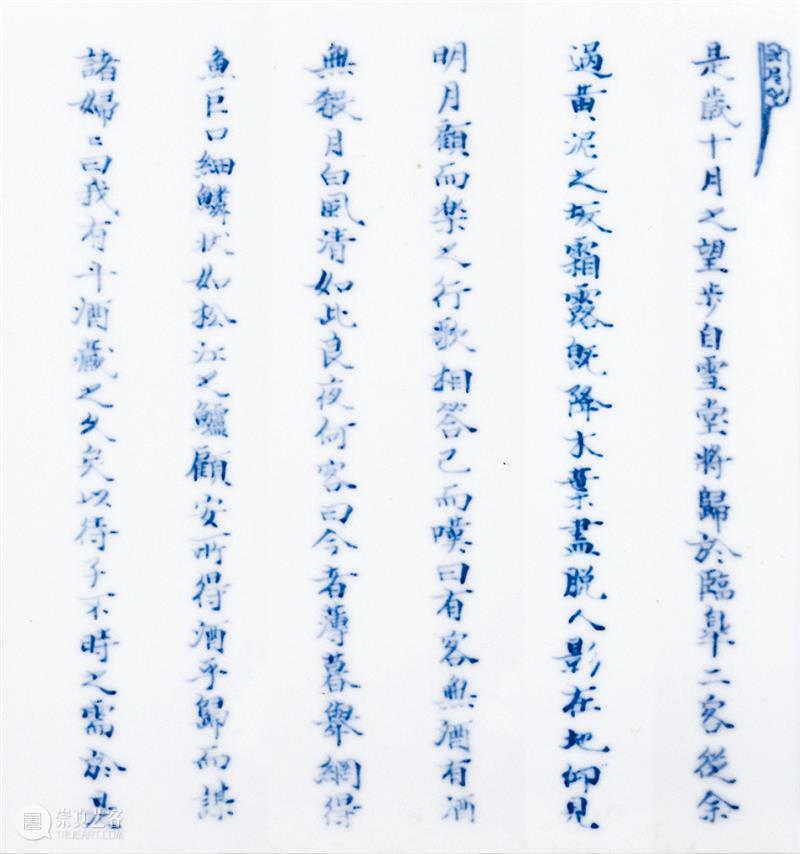 是歲十月之望步自雪堂將歸於臨臯二客從余
過黃泥之坂霜露既降木葉盡脱人影在地仰見
明月顧而楽之行歌相答已而嘆曰有客無酒有酒
無殽月白風清如此良夜何客曰今者薄暮舉網得
魚巨口細鱗狀如松江之鱸顧安所得酒乎歸而謀
諸婦〻曰我有斗酒藏之久矣以待子不時之需於是
崇真艺客
TRUEART.COM